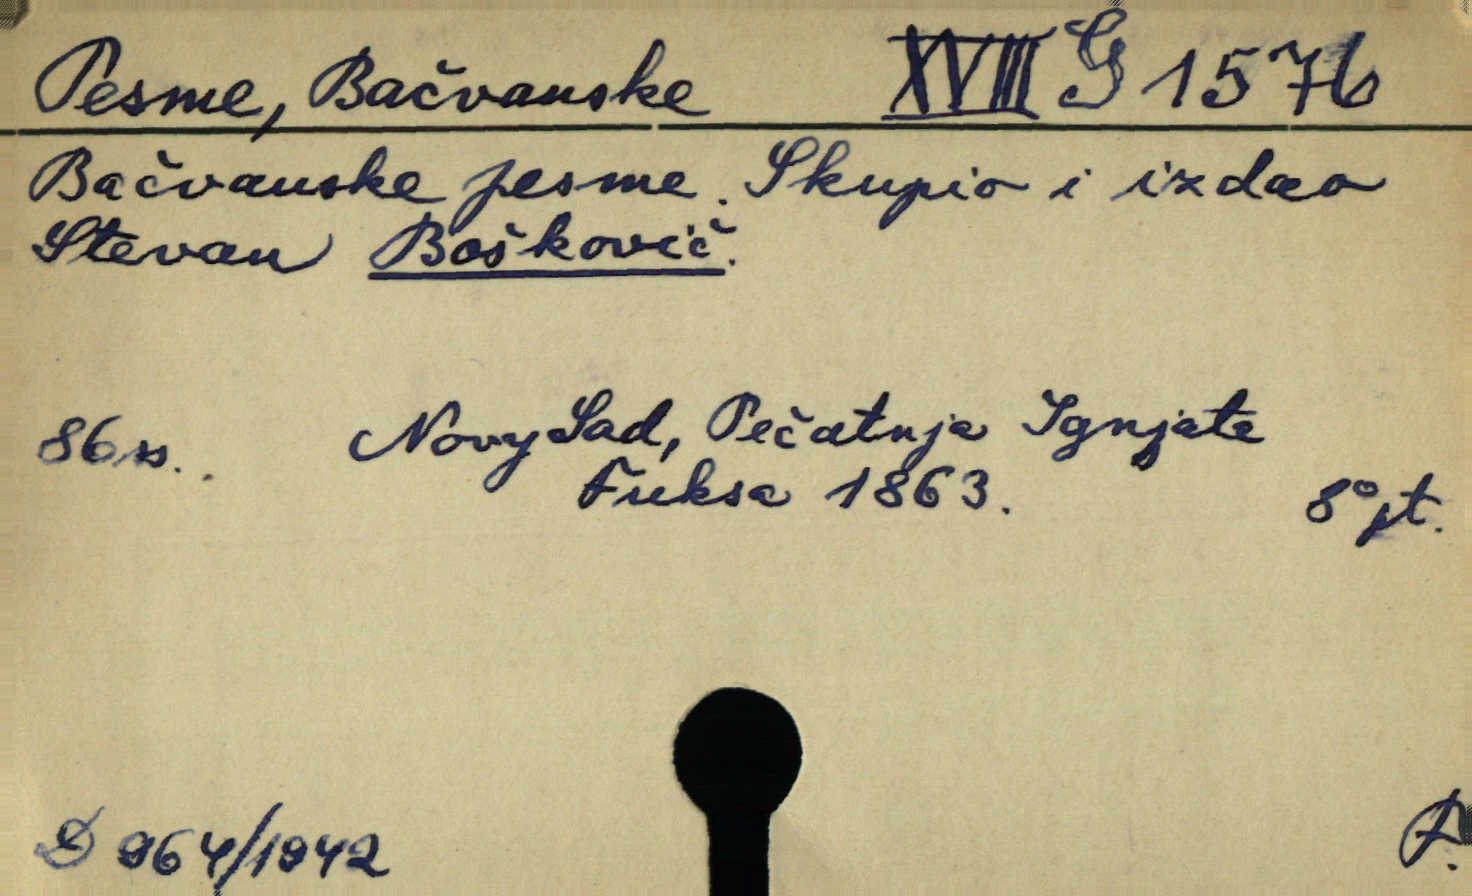 Pesme, Bačvanske XVIII G 1576
Bačvanske pesme. Skupio i izdao
Stevan Boškovič.
86 s. Novy Sad, Pečatnja Ignjata
Fuksa 1863.
8° jt.
D 964/1942